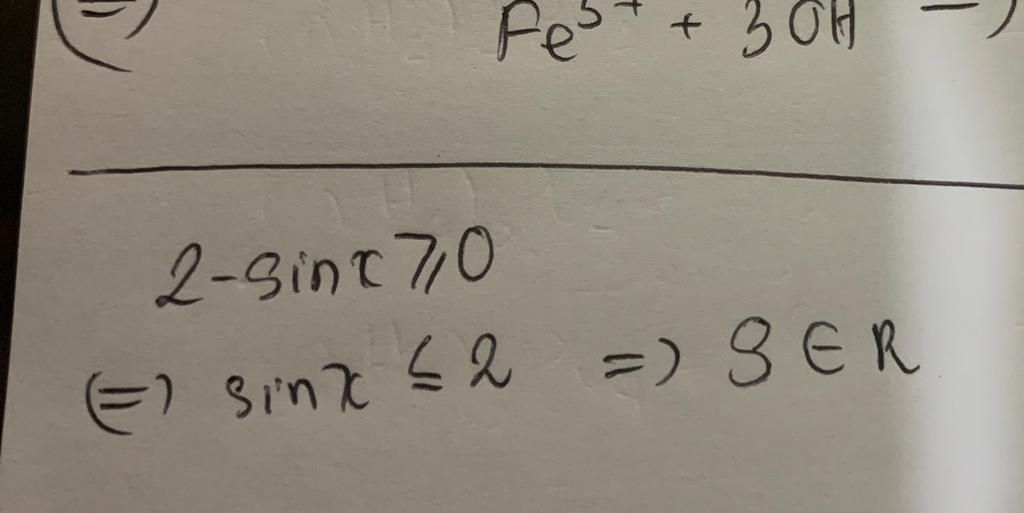 Fe³⁺ + 3OH →
2-sinx ⩾ 0
(=) sinx ≤ 2 => S ∈ R